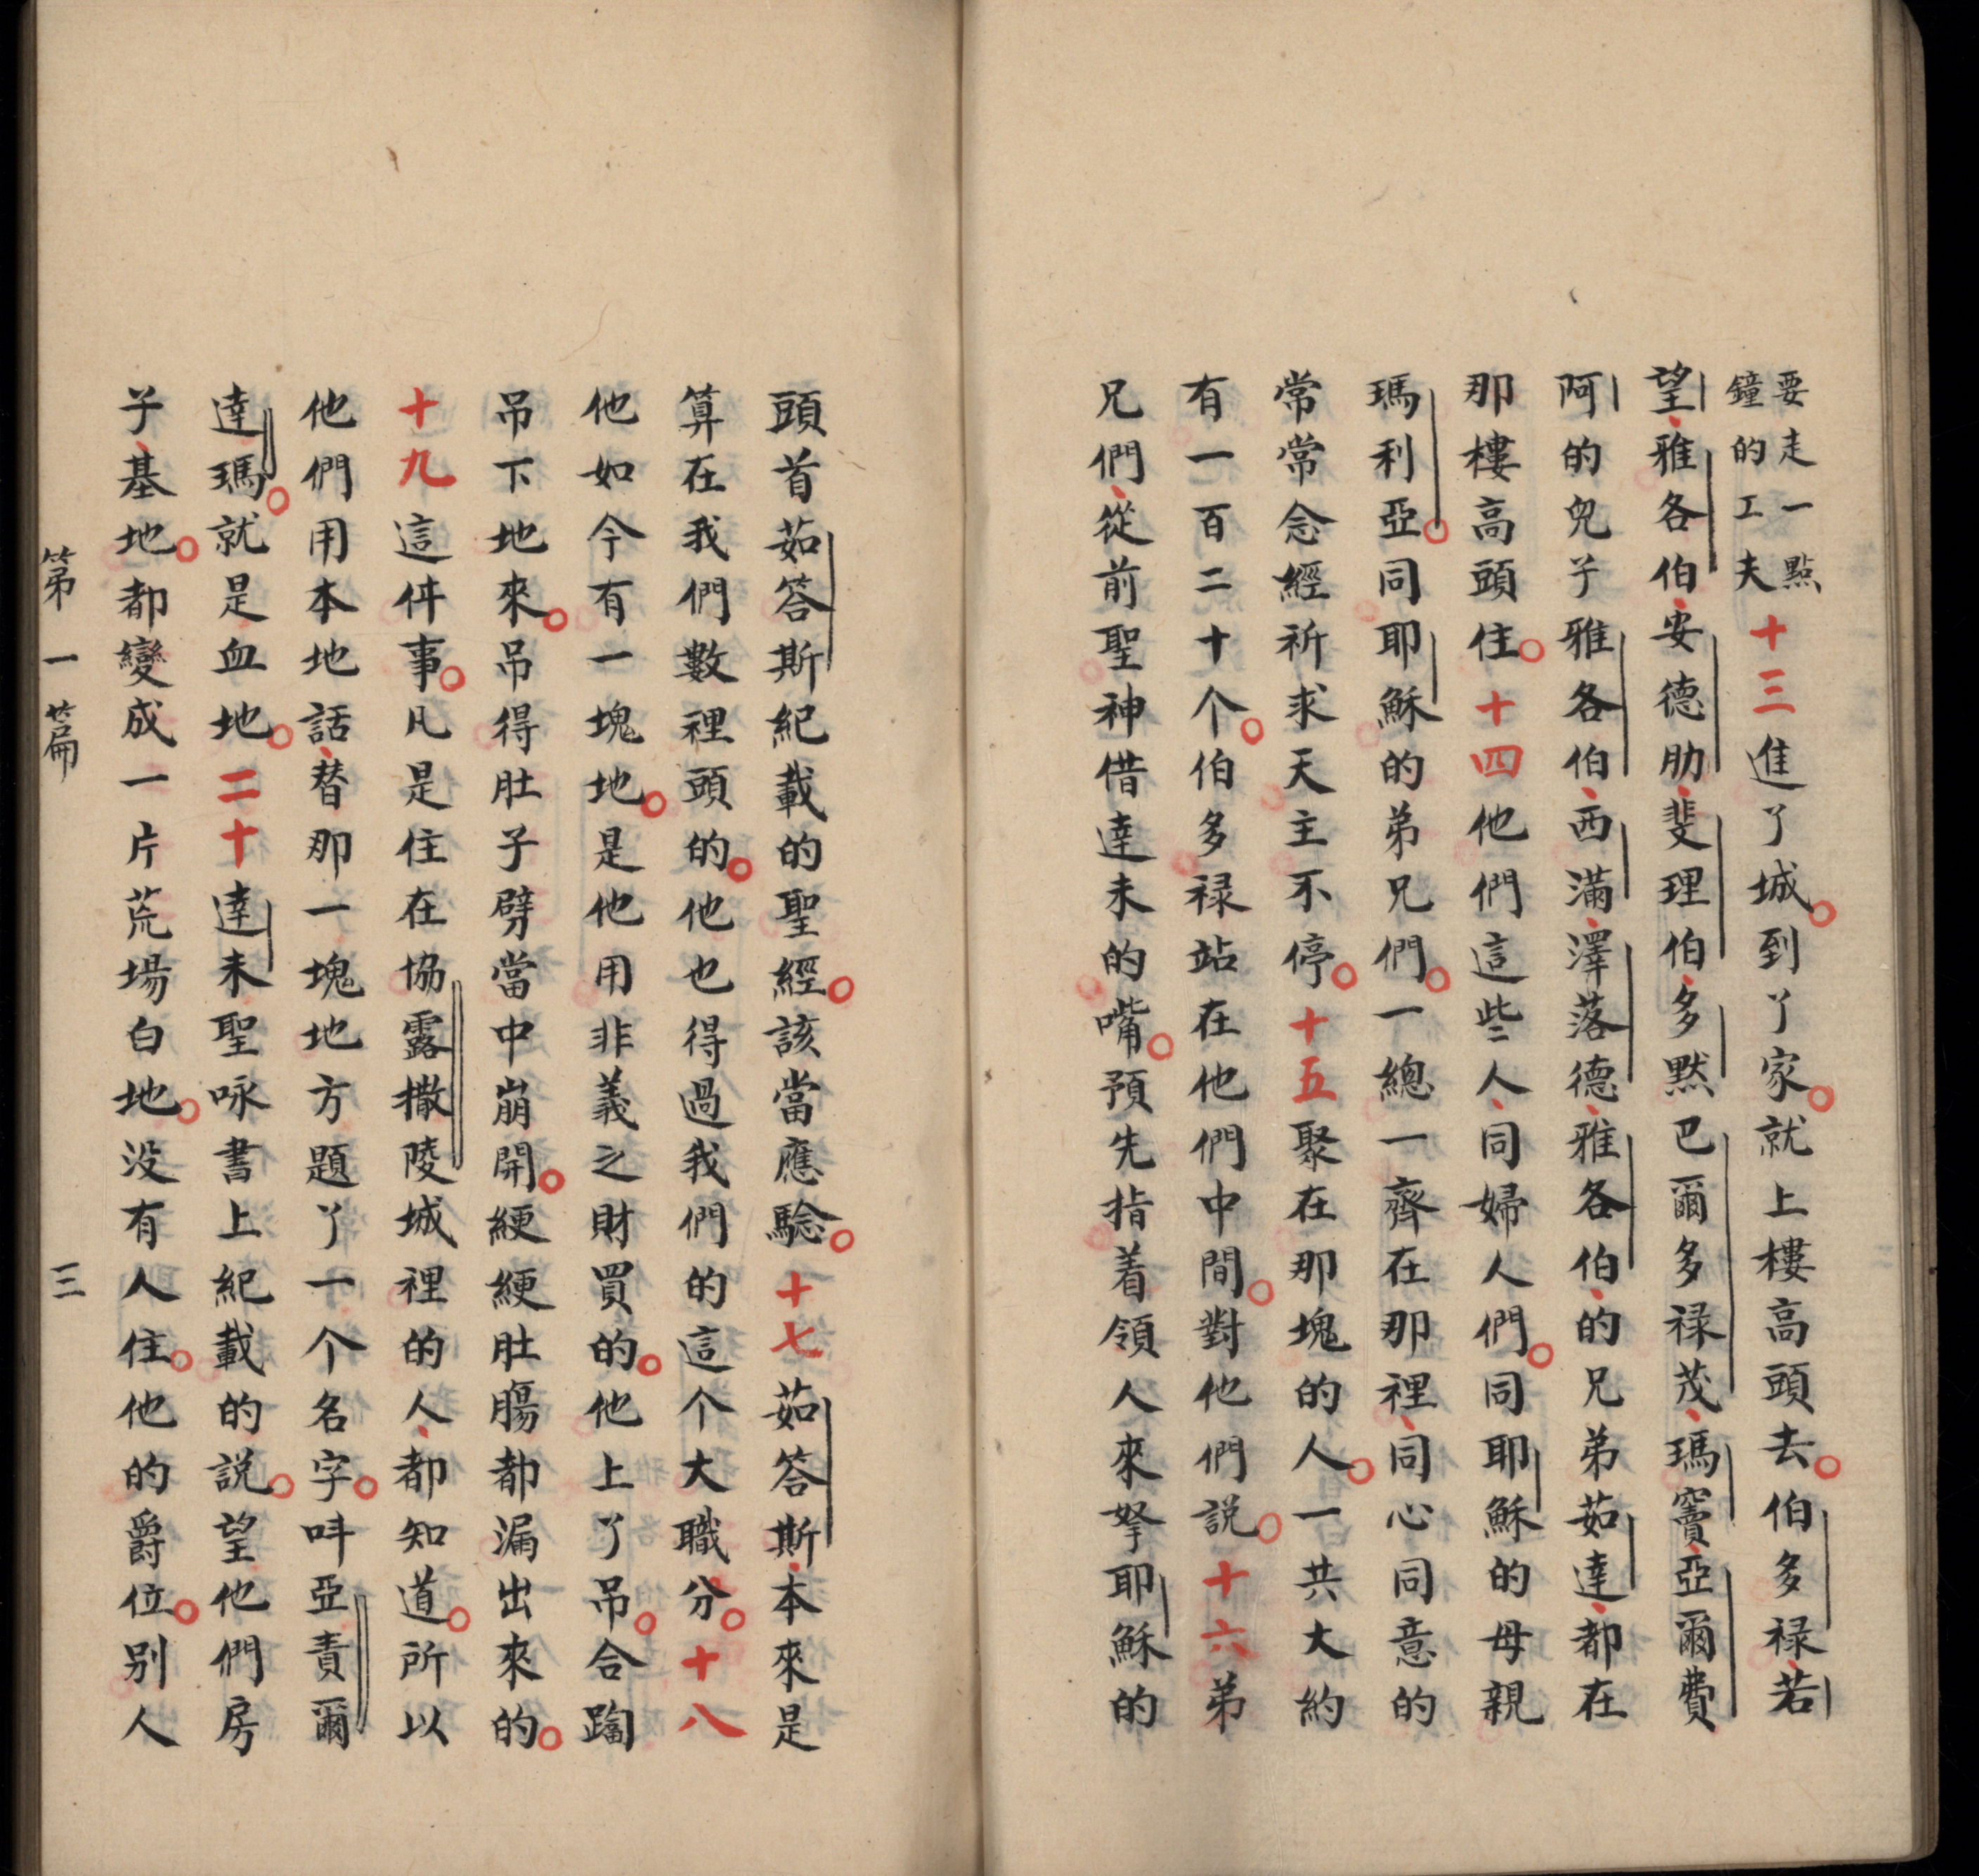 要走一點
鐘的工夫
十三進了城。到了家。就上樓高頭去。伯多禄、若
望、雅各伯、安德肋、斐理伯、多默巴爾多禄茂、瑪竇、亞爾費
阿的兒子雅各伯、西滿、澤落德、雅各伯、的兄弟茹達、都在
那樓高頭住。十四他們這些人、同婦人們。同耶穌的母親
瑪利亞。同耶穌的弟兄們。一總一齊在那裡、同心同意的
常常念經祈求天主不停。十五聚在那塊的人。一共大約
有一百二十个。伯多禄站在他們中間。對他們説。十六弟
兄們、從前聖神借達未的嘴。預先指着領人來拏耶穌的
頭首茹答斯紀載的聖經。該當應騐。十七茹答斯、本來是
算在我們數裡頭的。他也得過我們的這个大職分。十八
他如今有一塊地。是他用非義之財買的。他上了吊。合䠣
吊下地來。吊得肚子劈當中崩開。綆綆肚腸都漏出來的。
十九這件事。凡是住在協露撒陵城裡的人、都知道。所以
他們用本地話、替那一塊地方題了一个名字。呌亞責爾
達瑪。就是血地。二十達未聖咏書上紀載的説。望他們房
子、基地。都變成一片荒場白地。没有人住。他的爵位。别人
第一篇 三